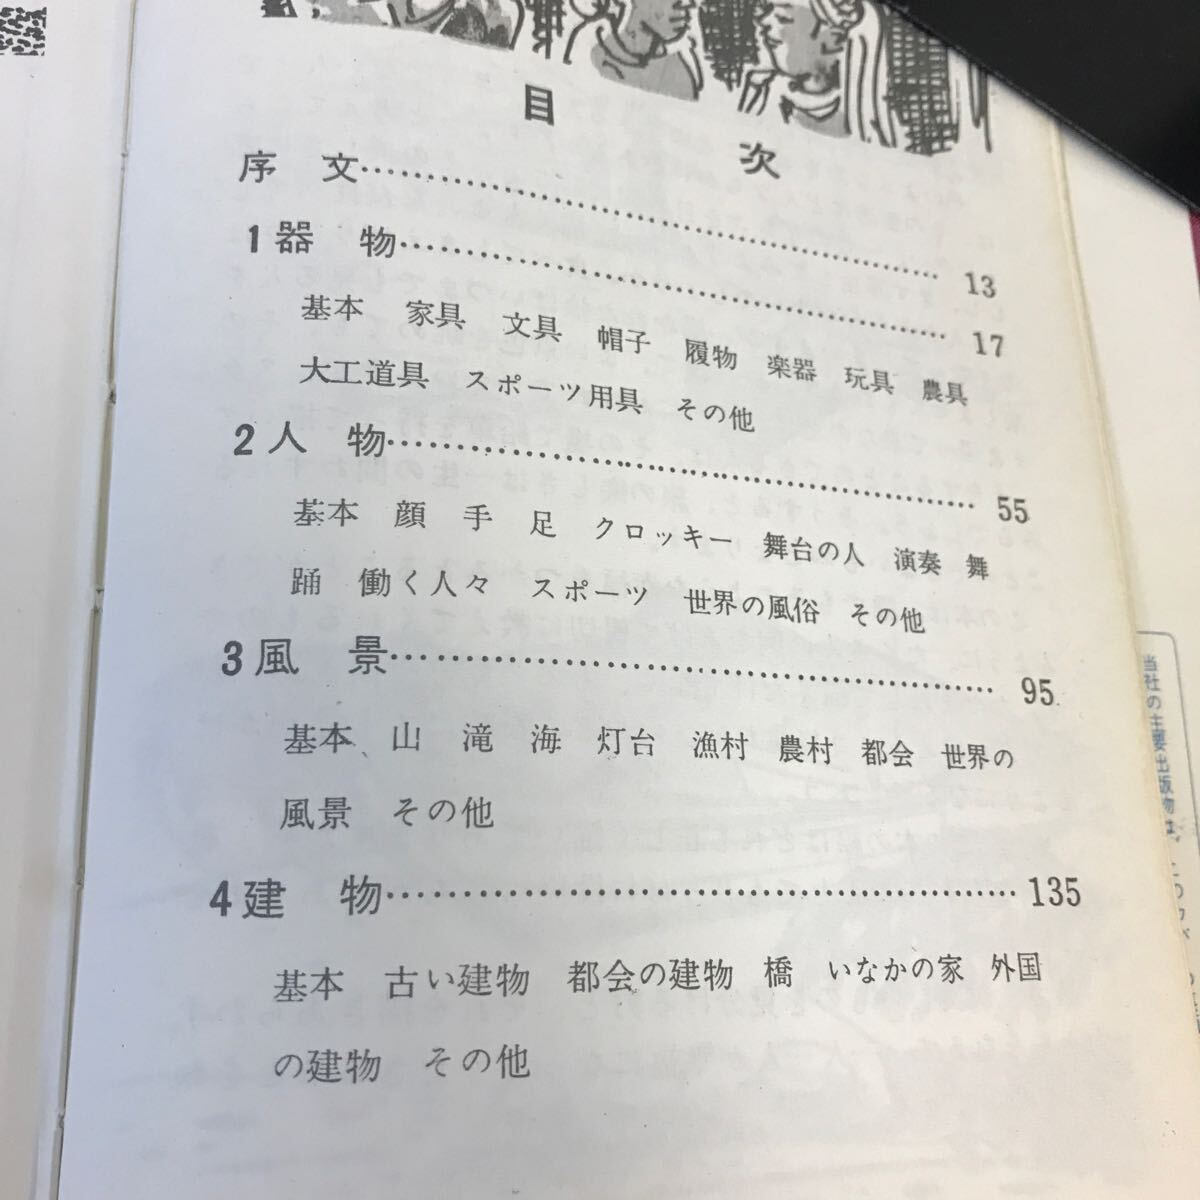 目次
序文 13
1 器物 17
基本 家具 文具 帽子 履物 楽器 玩具 農具
大工道具 スポーツ用具 その他
2 人物 55
基本 顔 手 足 クロッキー 舞台の人 演奏 舞
踊 働く人々 スポーツ 世界の風俗 その他
3 風景 95
基本 山 滝 海 灯台 漁村 農村 都会 世界の
風景 その他
4 建物 135
基本 古い建物 都会の建物 橋 いなかの家 外国
の建物 その他
当社の主要出版物は、このカバ